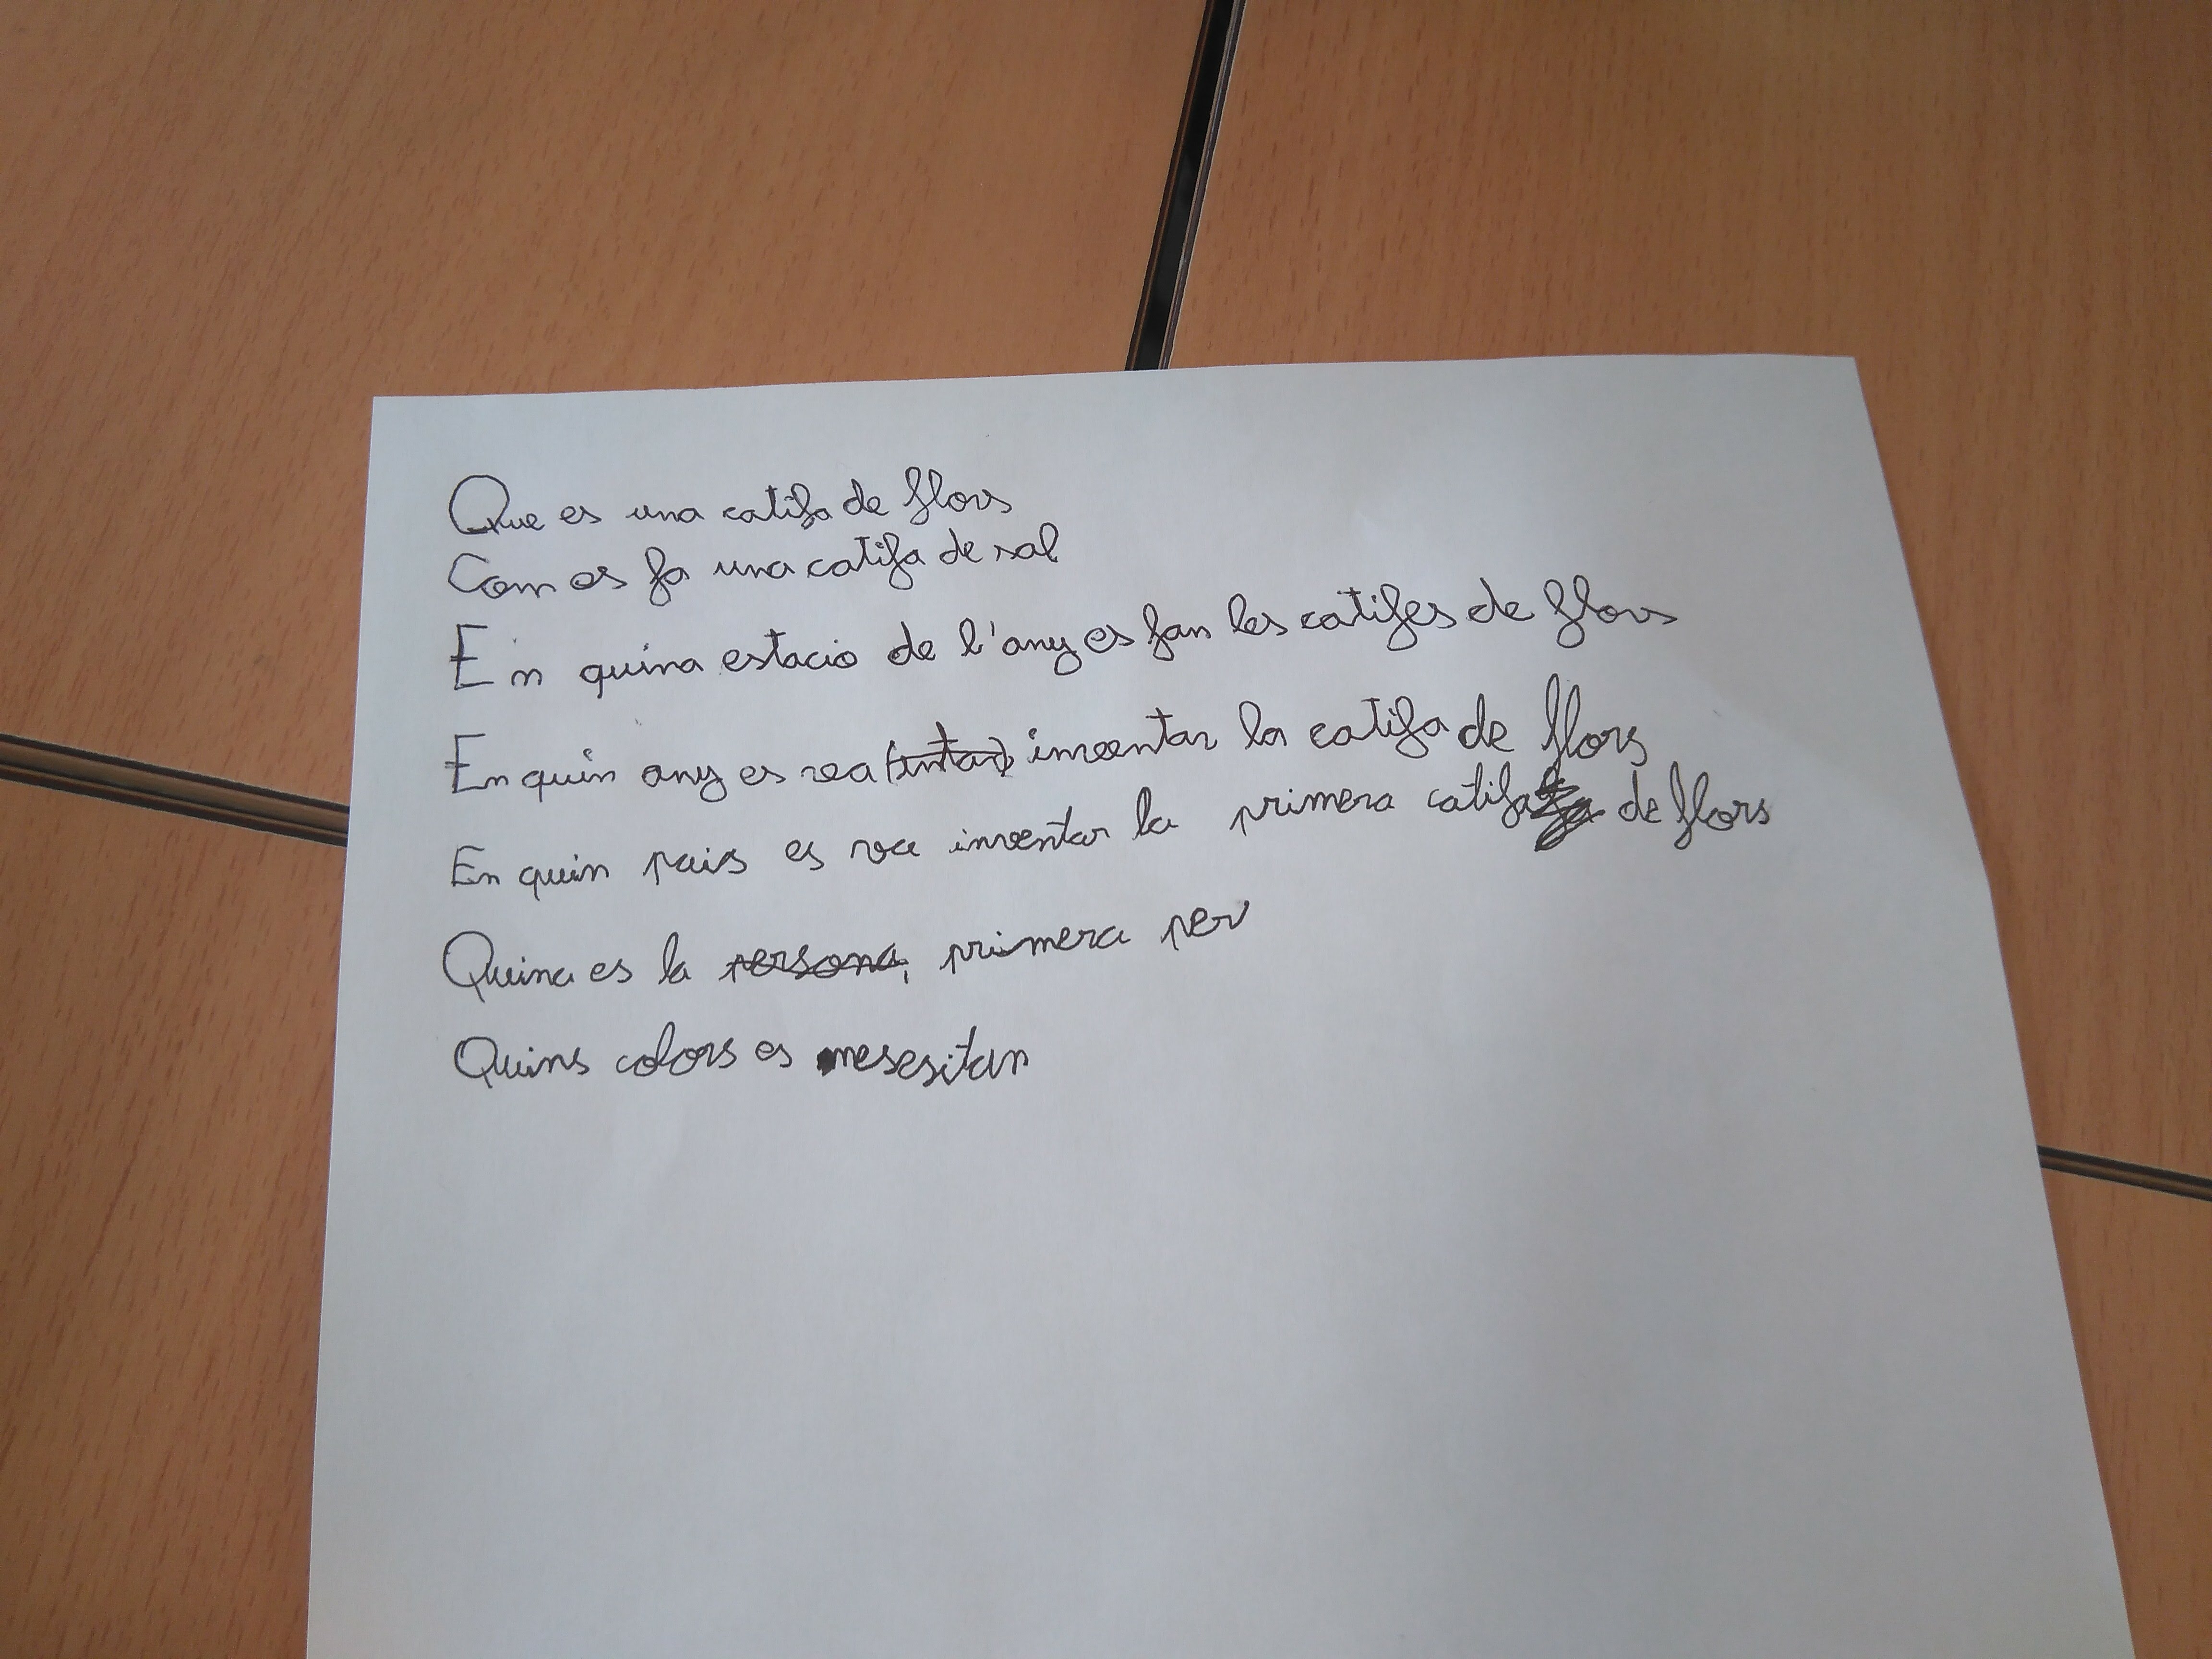 Que es una catifa de flors
Com es fa una catifa de sal
En quina estacio de l'any es fan les catifes de flors
En quin any es va inventar la catifa de flors
En quin pais es va inventar la primera catifa de flors
Quina es la persona, primera per
Quins colors es nesesitan